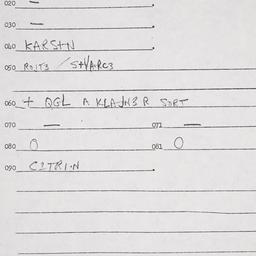 020 —
030 —
040 KARStN
050 ROJT3 / StVARC3
060 + QGL A KLAJN3R SORT
070 — 071 —
080 0 081 0
090 CITRI·N